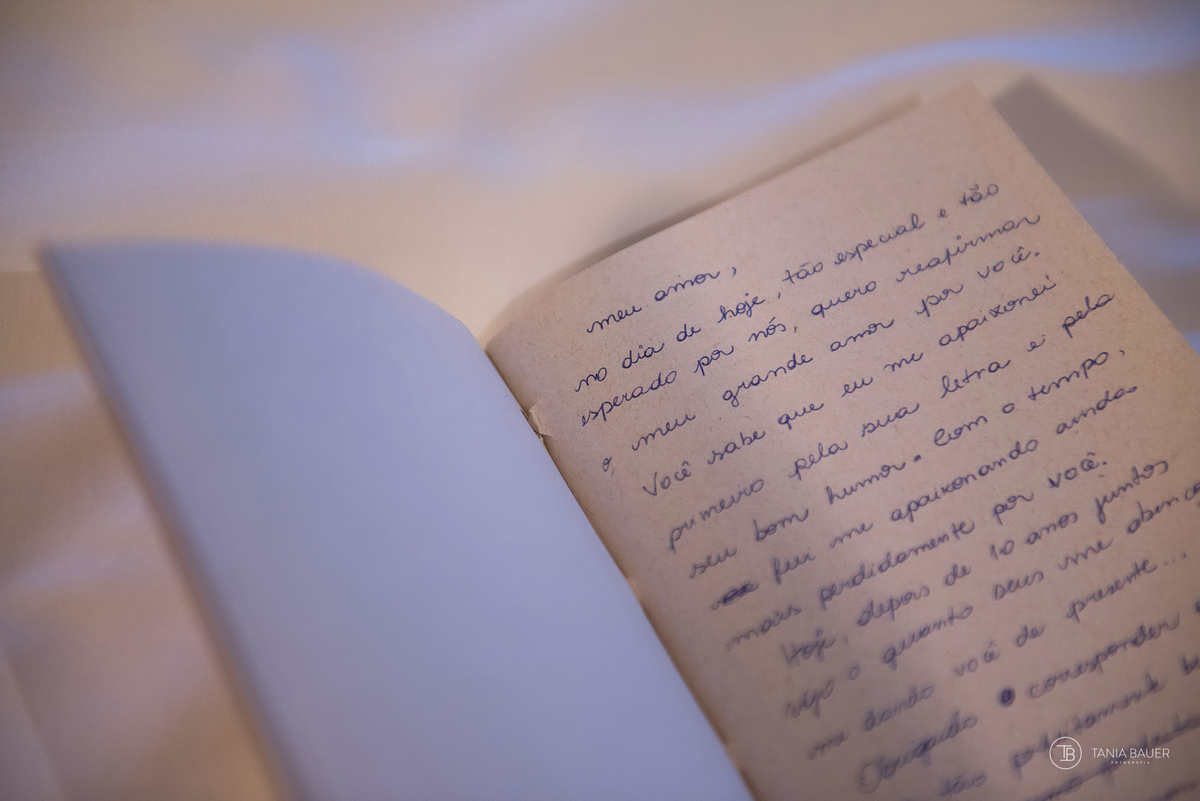 meu amor,
no dia de hoje, tão especial e tão
esperado por nós, quero reafirmar
o meu grande amor por você.
Você sabe que eu me apaixonei
primeiro pela sua letra e pela
seu bom humor. Com o tempo,
fui me apaixonando ainda
mais perdidamente por você.
Hoje, depois de 10 anos juntos
vejo o quanto Deus me abenço
me dando você de presente...
Obrigado corresponder
tão perfeitamente
TB TANIA BAUER
FOTOGRAFIA